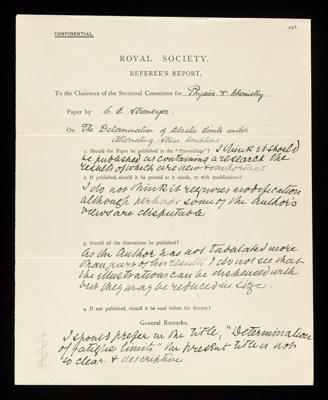 CONFIDENTIAL.
ROYAL SOCIETY.
REFEREE'S REPORT.
To the Chairman of the Sectional Committee for Physics & Chemistry
Paper by C. E. Stromeyer
On The Determination of Elastic Limits under
Alternating Stress Conditions.
1. Should the Paper be published in the "Proceedings"? I think it should
be published as containing a research the
results of which are new & important.
2. If published, should it be printed as it stands, or with modifications?
I do not think it requires modification
although perhaps some of the Author's
views are disputable
3. Should all the illustrations be published?
As the Author has not tabulated more
than part of his results I do not see that
the illustrations can be dispensed with
but they may be reduced in size.
4. If not published, should it be read before the Society?
General Remarks.
I should prefer in the title, "Determination
of fatigue limits" the present title is not
so clear & descriptive.